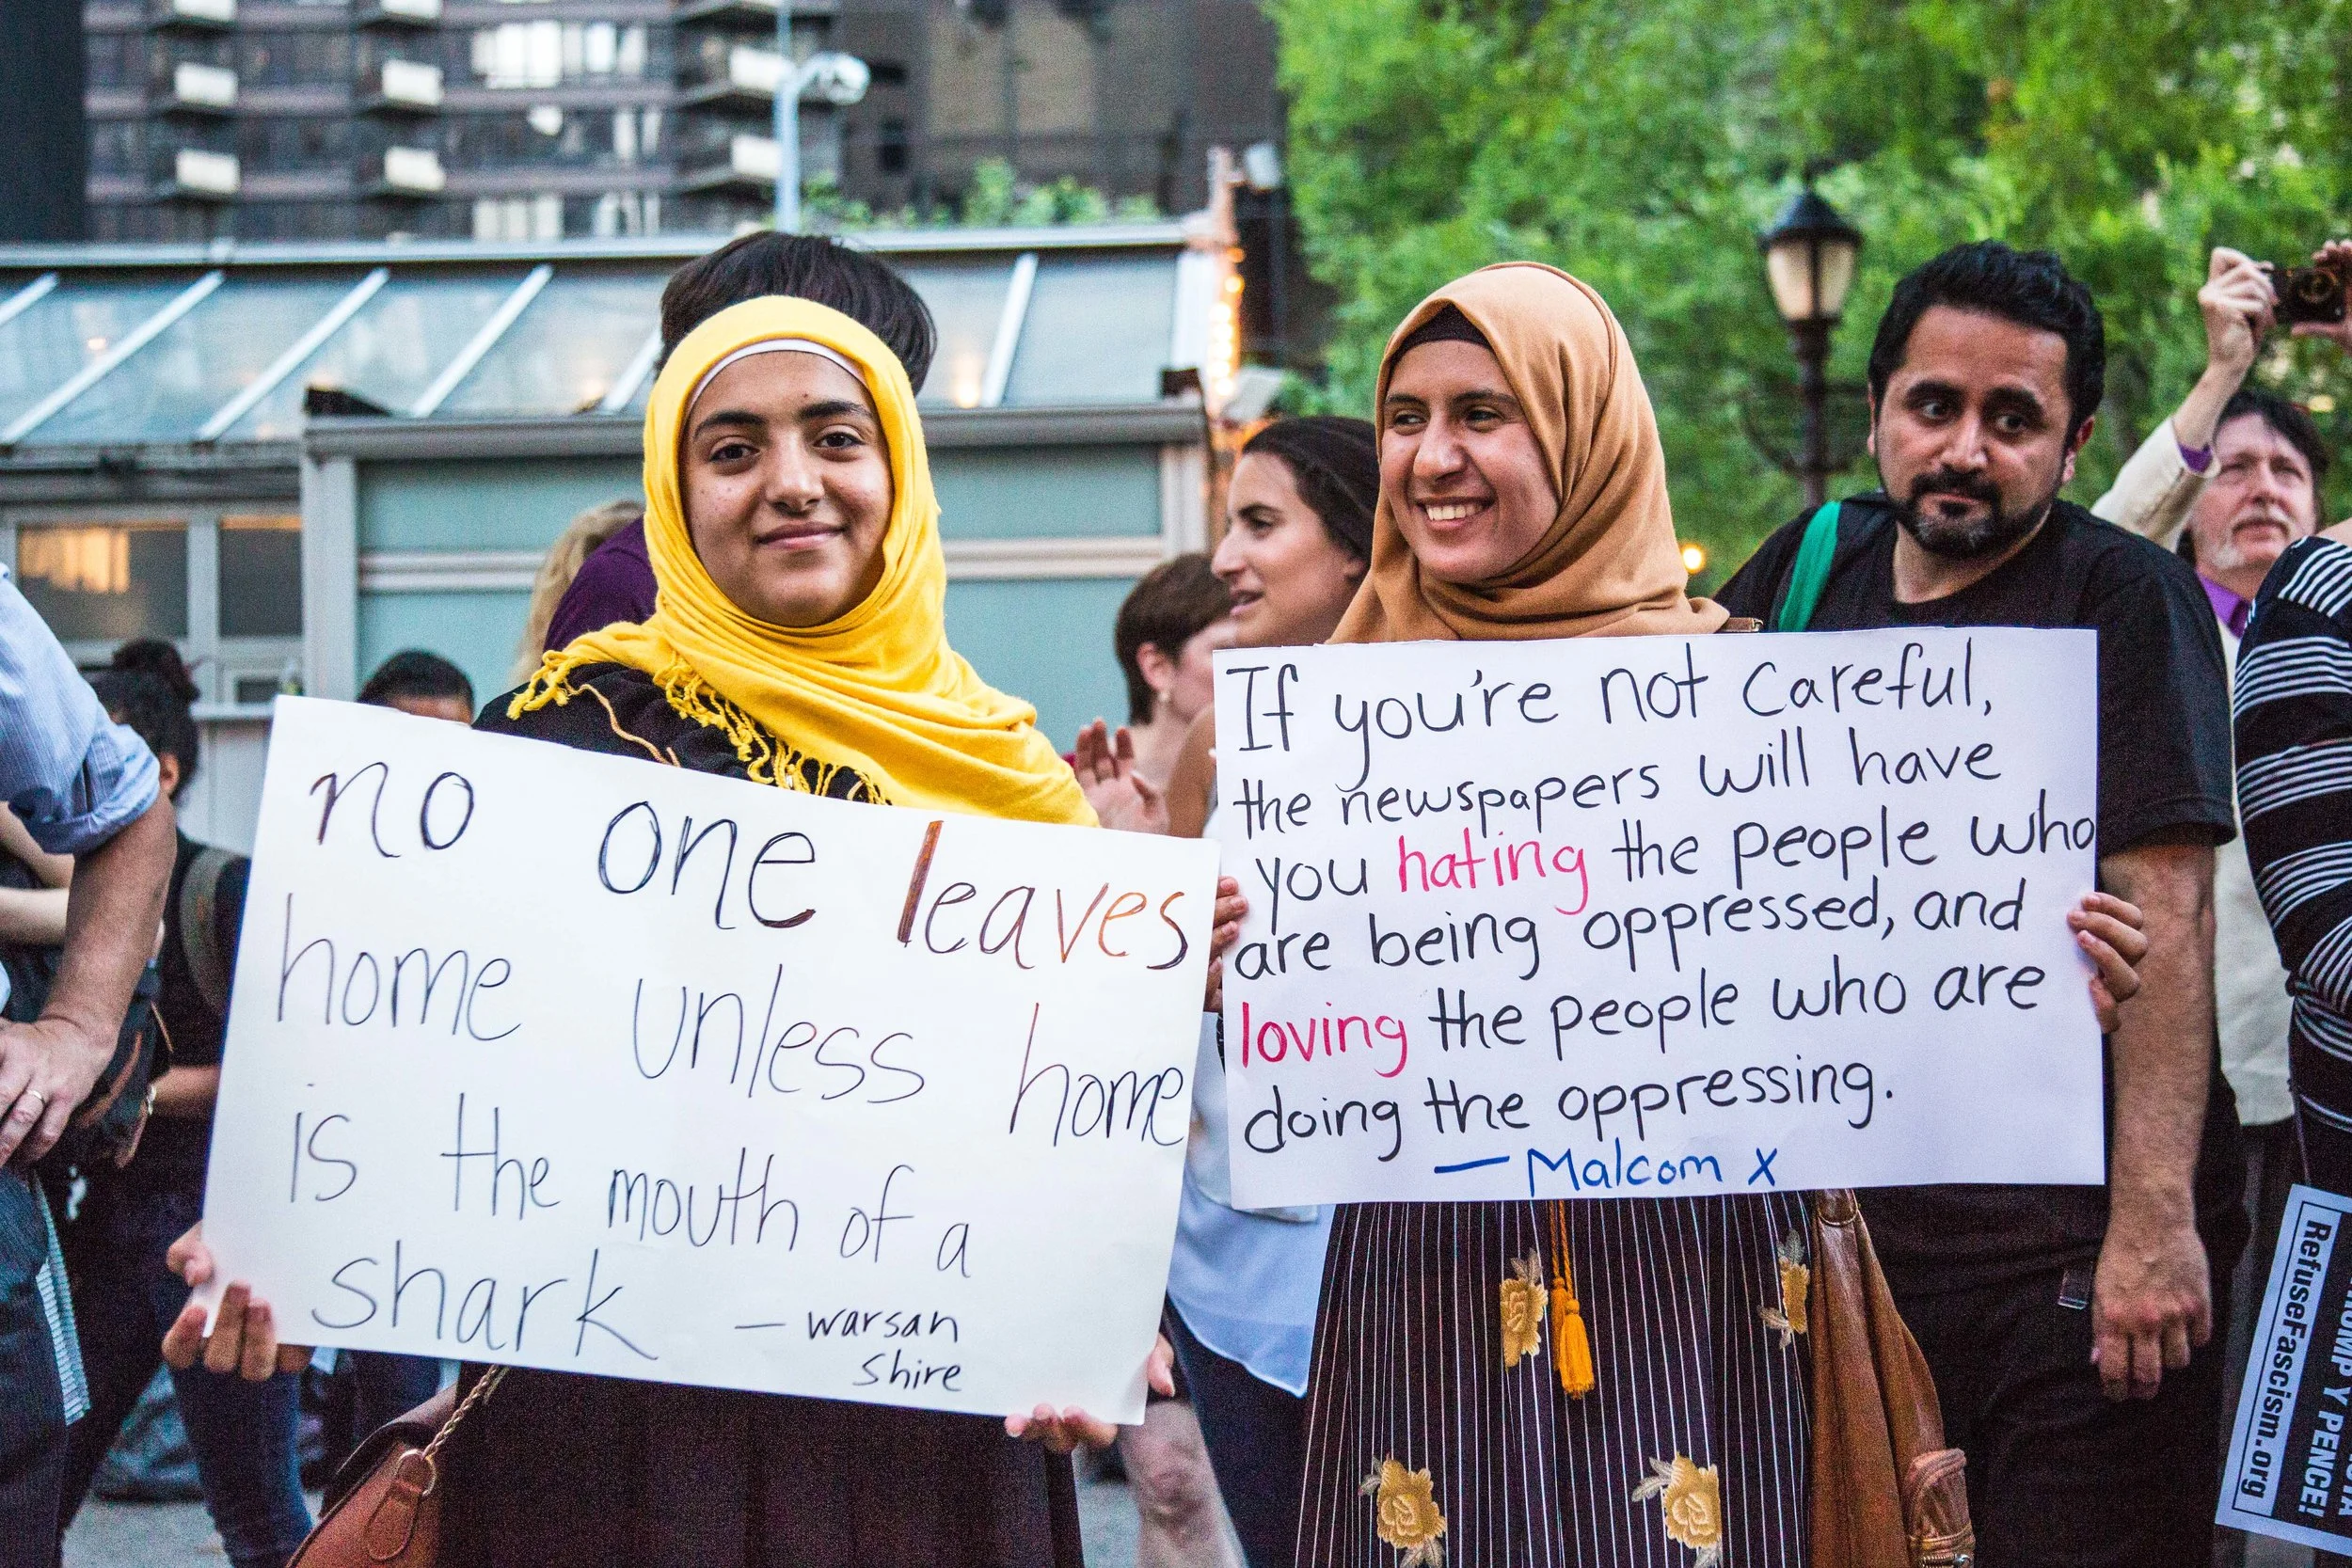 no one leaves
home unless home
is the mouth of a
shark — warsan
shire
If you're not careful,
the newspapers will have
you hating the people who
are being oppressed, and
loving the people who are
doing the oppressing.
— Malcom X
PENCE!
RefuseFascism.org